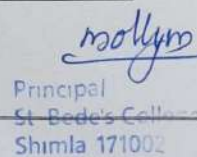 mollym
Principal
St. Bede's College
Shimla 171002